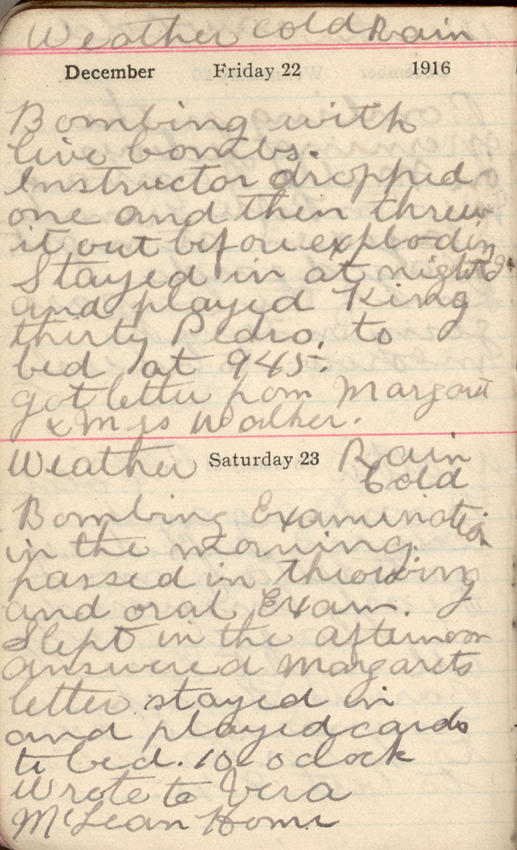 Weather cold Rain
December Friday 22 1916
Bombing with
live bombs.
Instructor dropped
one and then threw
it out before exploding
Stayed in at night
and played King
thirty Pedro, to
bed at 945.
got letter from Margaret
& Mrs Walker.
Weather Saturday 23 Rain
Cold
Bombing Examination
in the morning.
passed in throwing
and oral Exam.
Slept in the afternoon
answered Margarets
letter stayed in
and played cards
to bed. 10 o clock
Wrote to Vera
McLean Home